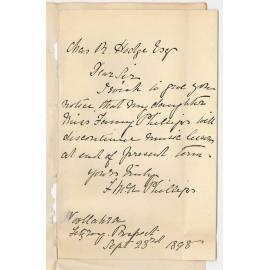 Chas B. Hodge Esq
Dear Sir
I wish to give you
notice that my daughter
Miss Fanny Phillips will
discontinue music lessons
at end of present term.
yours truly
Phillips
Woollahra
Prospect
Sept 23rd 1898